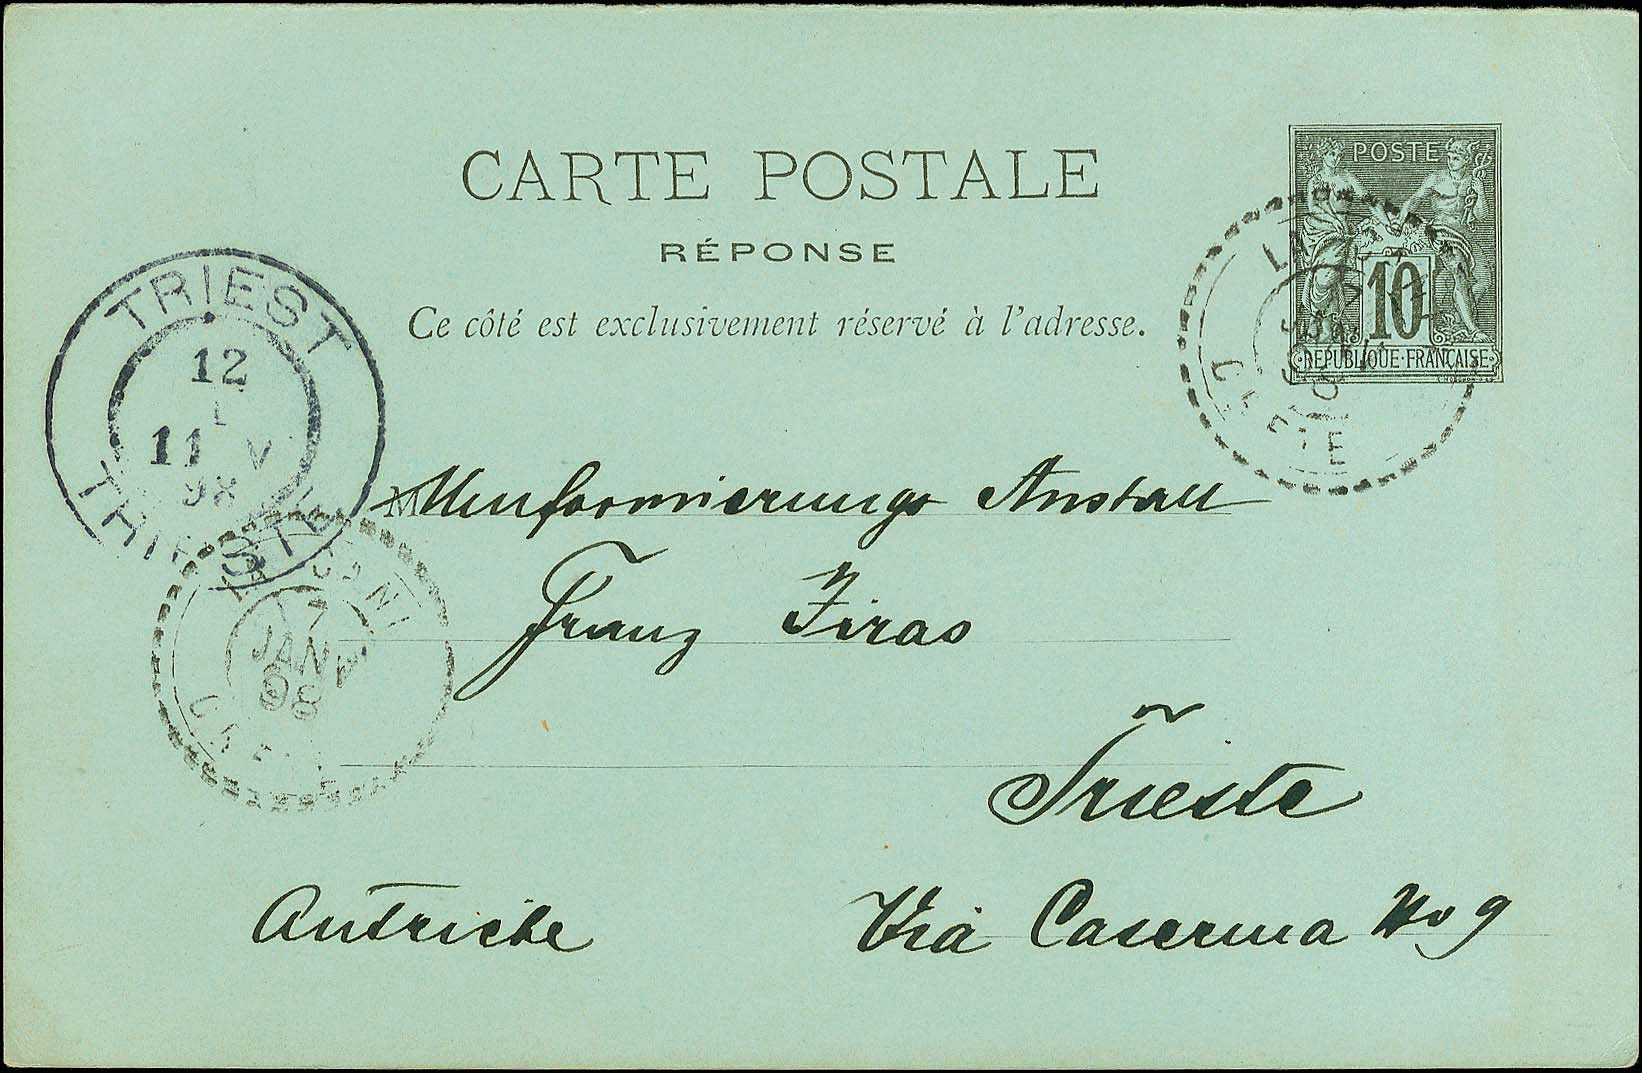 CARTE POSTALE
RÉPONSE
Ce côté est exclusivement réservé à l'adresse.
POSTE
10
REPUBLIQUE · FRANÇAISE
CRETE
TRIEST
12
I
11 V
98
7
JANV.
98
CRETE
M Uniformierungs Anstalt
Franz
Trieste
Autriche
Via Caserma No 9